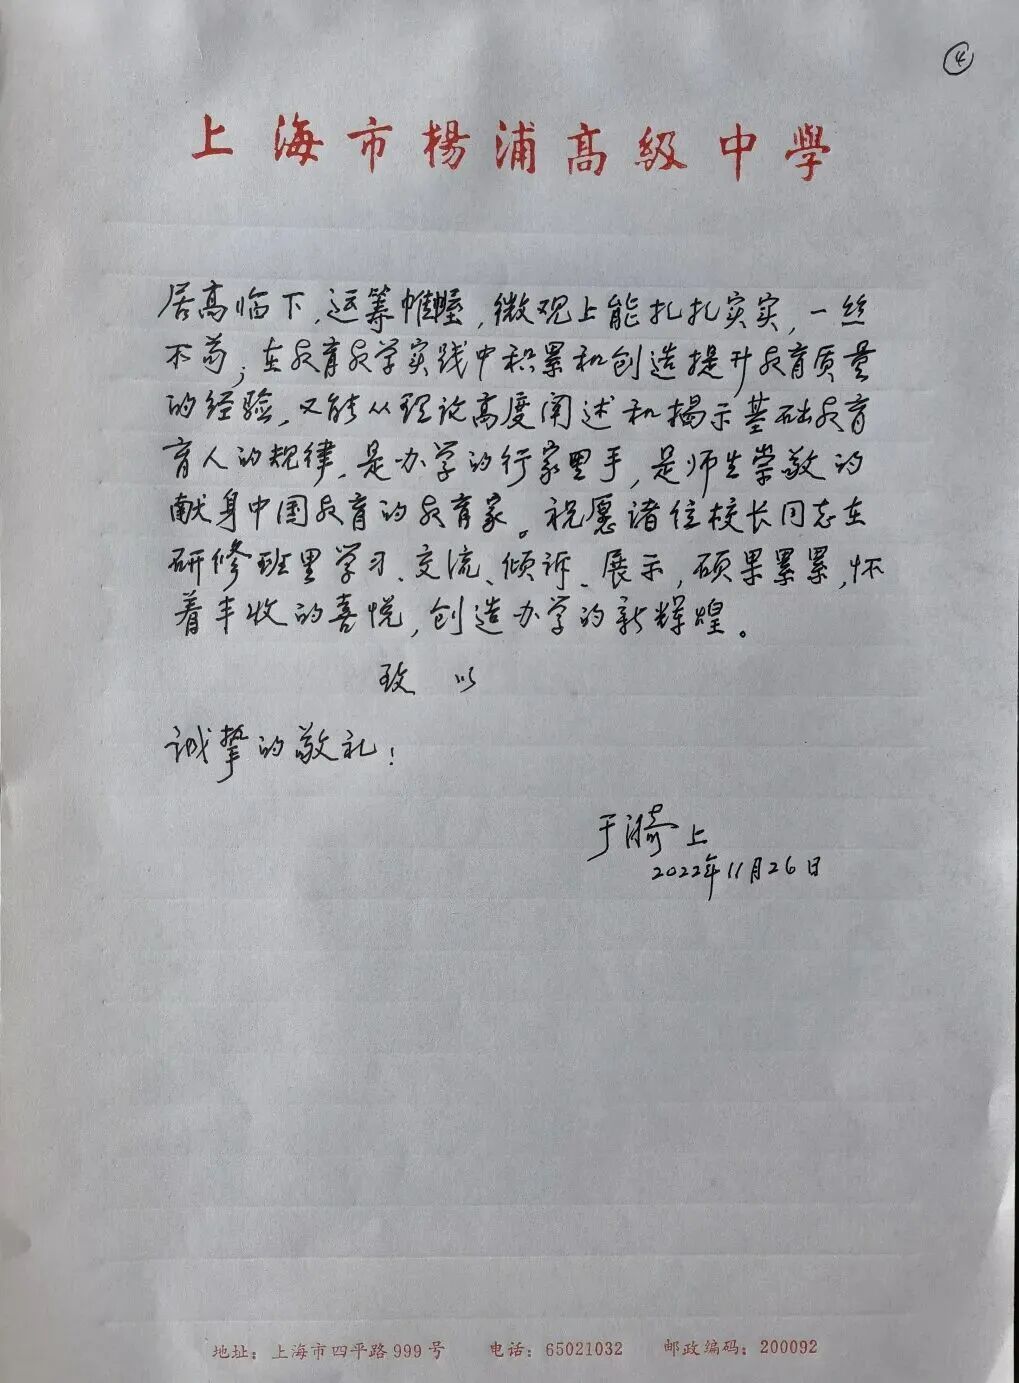 ④
上海市楊浦高級中學
居高临下,运筹帷幄,微观上能扎扎实实,一丝
不苟;在教育教学实践中积累和创造提升教育质量
的经验,又能从理论高度阐述和揭示基础教育
育人的规律,是办学的行家里手,是师生崇敬的
献身中国教育的教育家。祝愿诸位校长同志在
研修班里学习、交流、倾诉、展示,硕果累累,怀
着丰收的喜悦,创造办学的新辉煌。
致以
诚挚的敬礼!
于漪上
2022年11月26日
地址:上海市四平路999号 电话:65021032 邮政编码:200092